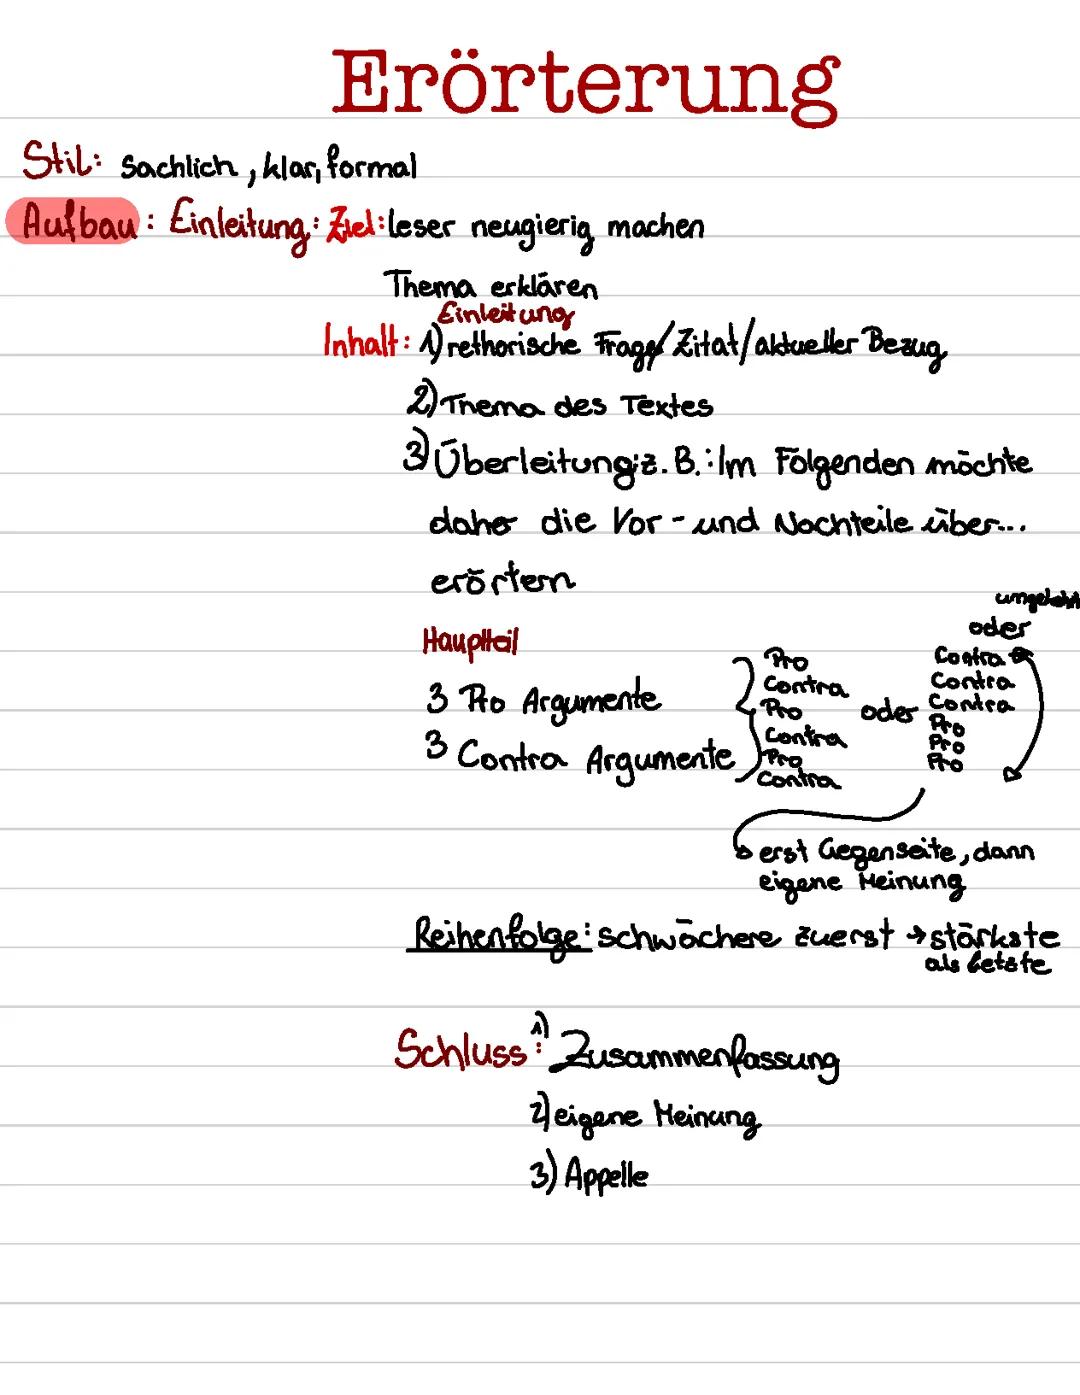 Erörterung
Stil: sachlich, klar, formal
Aufbau: Einleitung: Ziel: leser neugierig machen
Thema erklären
Einleitung
Inhalt: 1) rethorische Frage/Zitat/aktueller Bezug
2) Thema des Textes
3) Überleitung: z.B.: Im Folgenden möchte
daher die Vor- und Nachteile über...
erörtern
umgekehrt
oder
Hauptteil
3 Pro Argumente
3 Contra Argumente
Pro
Contra
Pro
Contra
Pro
Contra
oder
Contra
Contra
Contra
Pro
Pro
Pro
erst Gegenseite, dann
eigene Meinung
Reihenfolge: schwächere zuerst → stärkste
als letzte
Schluss: 1) Zusammenfassung
2) eigene Meinung
3) Appelle